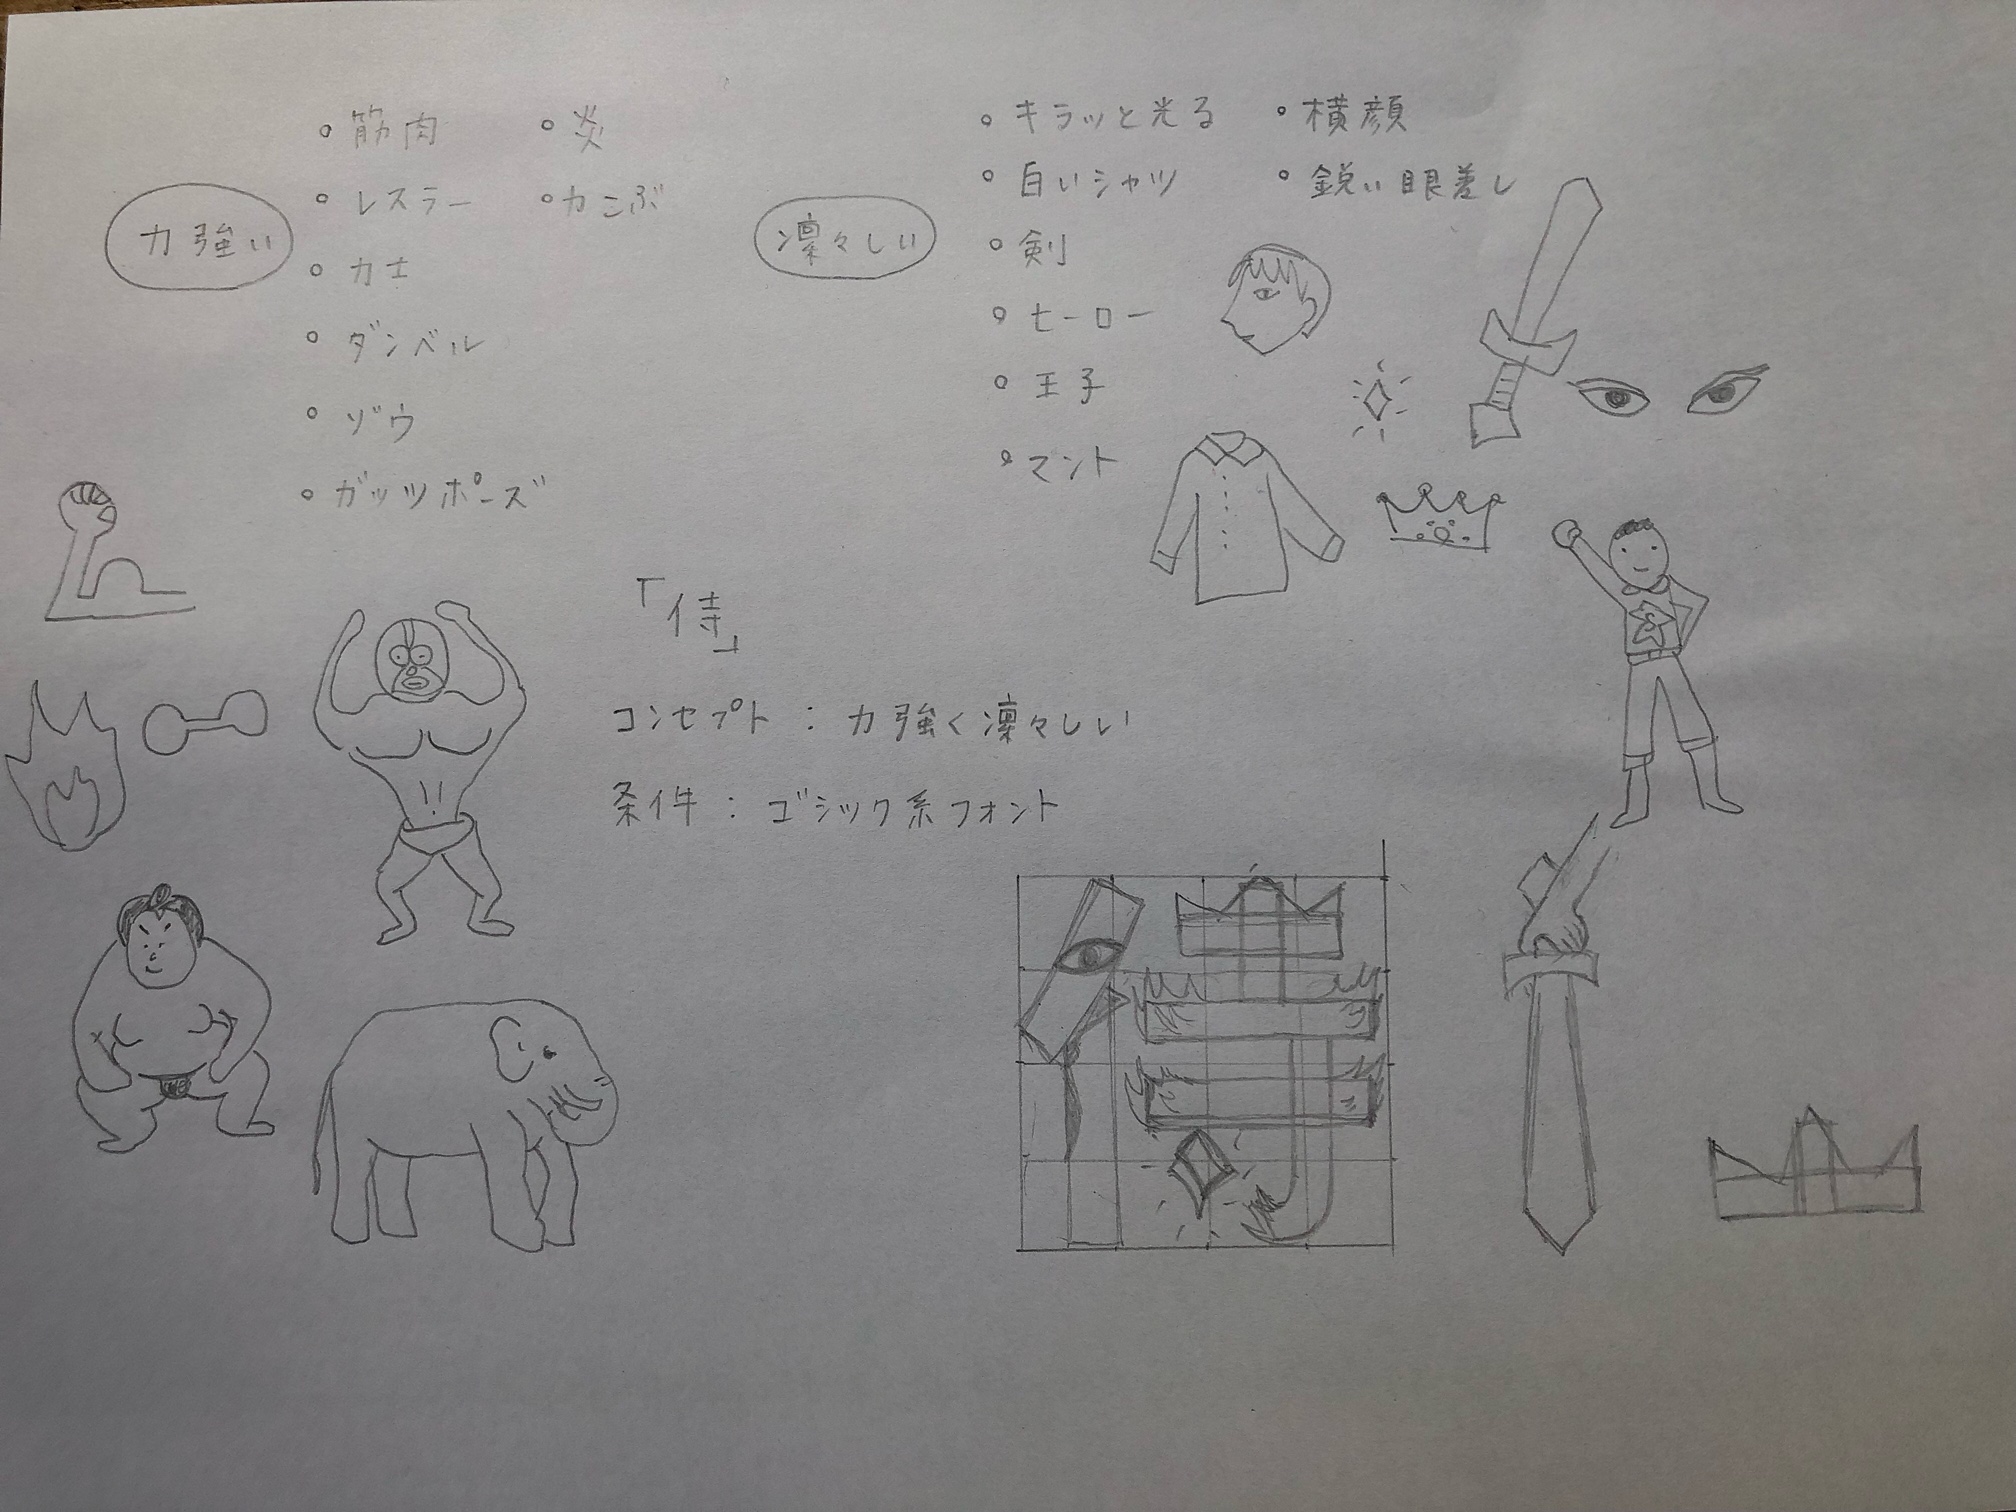 力強い
・筋肉
・レスラー
・力士
・ダンベル
・ゾウ
・ガッツポーズ
・炎
・力こぶ
凛々しい
・キラッと光る
・白いシャツ
・剣
・ヒーロー
・王子
・マント
・横顔
・鋭い眼差し
「侍」
コンセプト：力強く凛々しい
条件：ゴシック系フォント
侍